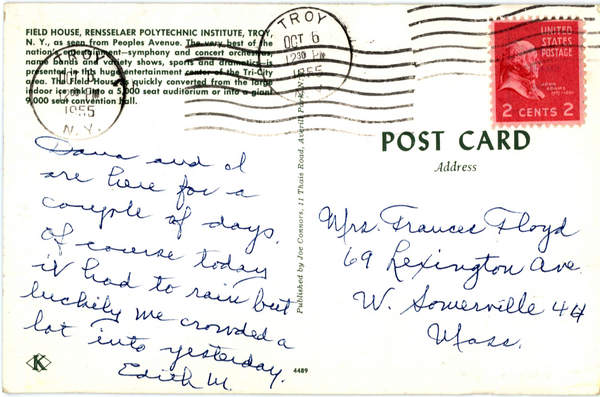 FIELD HOUSE, RENSSELAER POLYTECHNIC INSTITUTE, TROY,
N. Y., as seen from Peoples Avenue. The very best of the
nation's entertainment—symphony and concert orchestras,
name bands and variety shows, sports and dramatics—is
presented in this huge entertainment center of the Tri-City
area. The Field House is quickly converted from the large
indoor ice rink into a 5,000 seat auditorium or into a giant
9,000 seat convention hall.
TROY
OCT 6
12 30 PM
1955
N.Y.
TROY
OCT 6
12 30 PM
1955
UNITED
STATES
POSTAGE
JOHN
ADAMS
2 CENTS 2
POST CARD
Address
Dana and I
are here for a
couple of days.
Of course today
it had to rain but
luckily we crowded a
lot into yesterday.
Edith M.
Published by Joe Connors, 11 Thais Road, Averill Park, N.Y.
Mrs. Frances Floyd
69 Lexington Ave.
W. Somerville 44
Mass.
K
4489